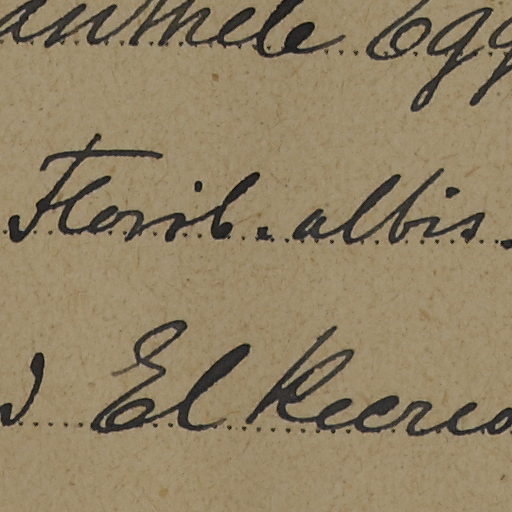 anthele Egg
Florib. albis.
El Recreo